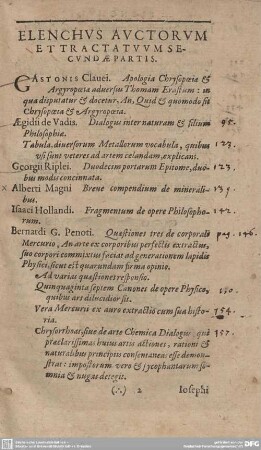 ELENCHVS AVCTORVM
ET TRACTATVVM SE-
CVNDÆ PARTIS.
GASTONIS Clauei. Apologia Chrysopœiæ &
Argyropœiæ aduersus Thomam Erastum: in
qua disputatur & docetur, An, Quid & quomodo sit
Chrysopœia & Argyropœia.
Ægidii de Vadis. Dialogus inter naturam & filium 95.
Philosophiæ.
Tabula, diuersorum Metallorum vocabula, quibus 123.
vsi sunt veteres ad artem celandam, explicans.
Georgii Riplei. Duodecim portarum Epitome, duo- 123.
bus modis concinnata.
Alberti Magni Breue compendium de minerali- 134.
bus.
Isaaci Hollandi. Fragmentum de opere Philosopho- 142.
rum.
Bernardi G. Penoti. Quæstiones tres de corporali pag. 146.
Mercurio, An arte ex corporibus perfectis extractus,
siue corpori commixtus faciat ad generationem lapidis
Physici, sicut est quorundam firma opinio.
Ad varias quæstiones responsio.
Quinquaginta septem Canones de opere Physico, 150.
quibus ars dilucidior fit.
Vera Mercurii ex auro extractio cum sua histo- 154.
ria.
Chrysorrhoas, siue de arte Chemica Dialogus quo 157.
præclarissimas huius artis actiones, rationi &
naturalibus principiis consentaneas esse demon-
strat: impostorum vero & sycophantarum so-
mnia & nugas detegit.
2 Iosephi